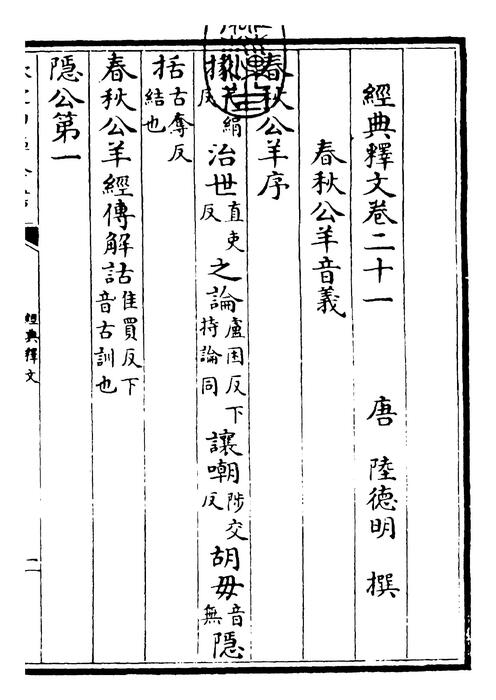 經典釋文卷二十一 唐 陸德明 撰
春秋公羊音義
春秋公羊序
掾絹反治世直吏反之論盧困反下持論同讓嘲陟交反胡毋音無隱
括古奪反結也
春秋公羊經傳解詁佳買反下音古訓也
隱公第一
經典釋文 二